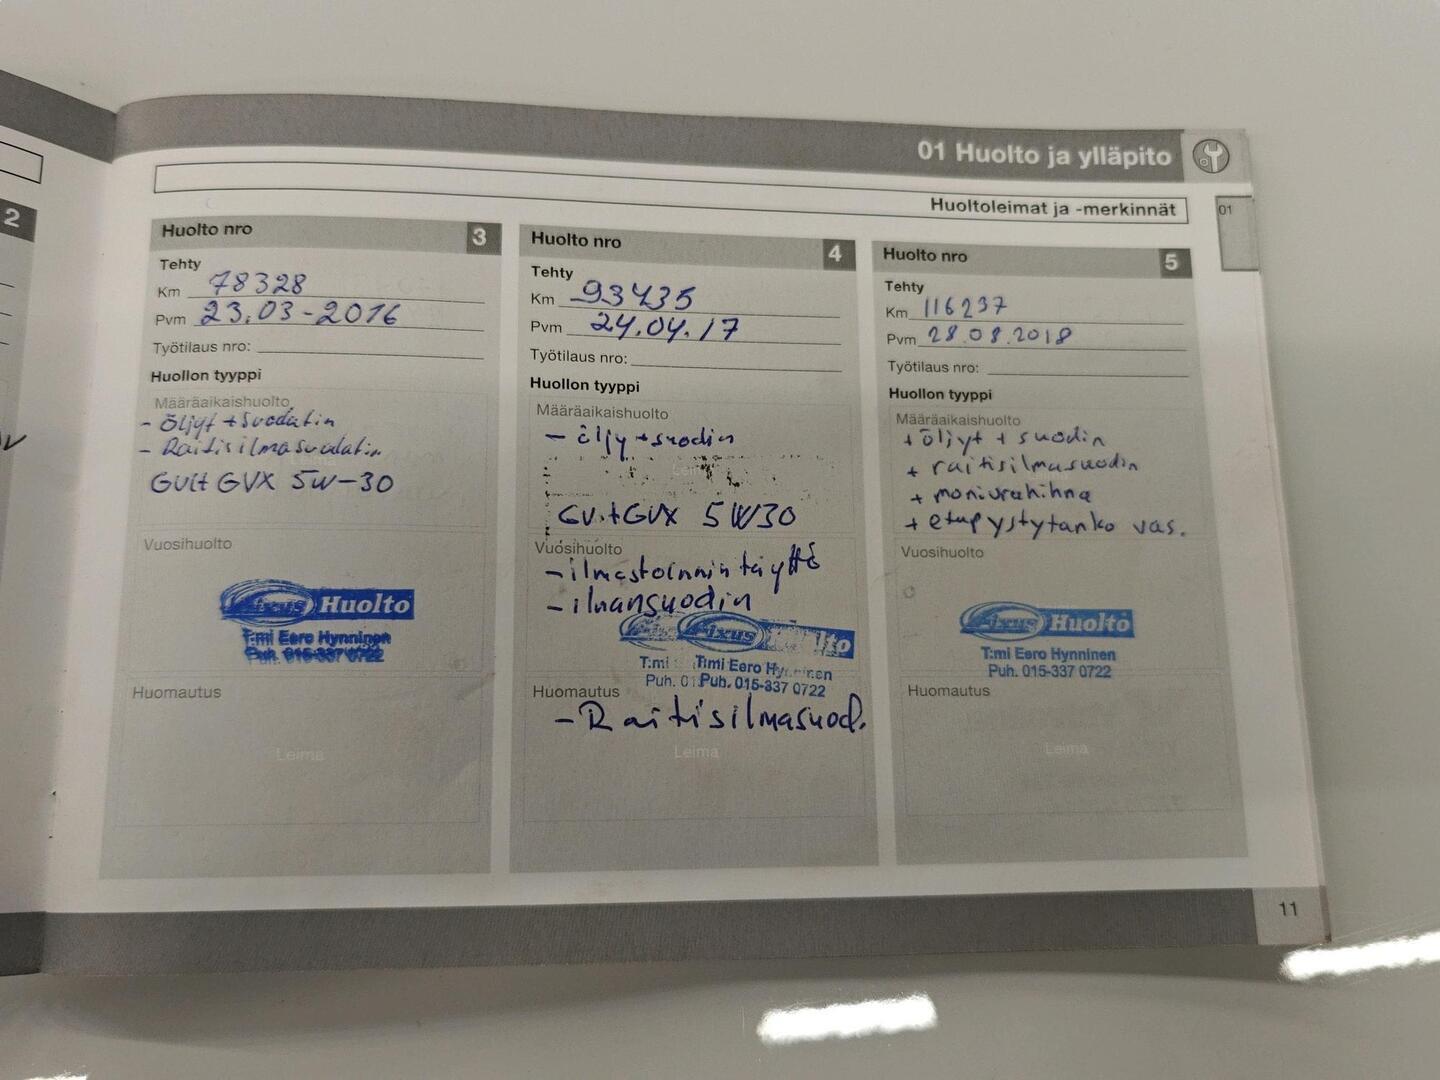 2
01 Huolto ja ylläpito
Huoltoleimat ja -merkinnät
01
Huolto nro 3
Tehty
Km 78328
Pvm 23.03-2016
Työtilaus nro:
Huollon tyyppi
Määräaikaishuolto
- Öljyt + suodatin
- Raitisilmasuodatin
Gulf GVX 5W-30
Vuosihuolto
Fixus Huolto
T:mi Eero Hynninen
Puh. 015-337 0722
Huomautus
Leima
Huolto nro 4
Tehty
Km 93435
Pvm 24.04.17
Työtilaus nro:
Huollon tyyppi
Määräaikaishuolto
- öljy + suodin
Leima
Gulf GVX 5W30
Vuosihuolto
- ilmastoinnin täyttö
- ilmansuodin
Fixus Huolto
T:mi T:mi Eero Hynninen
Puh. 01 Puh. 015-337 0722
Huomautus
- Raitisilmasuod.
Leima
Huolto nro 5
Tehty
Km 116237
Pvm 28.08.2018
Työtilaus nro:
Huollon tyyppi
Määräaikaishuolto
+ öljyt + suodin
+ raitisilmasuodin
+ moniurahihna
+ etupystytanko vas.
Vuosihuolto
Fixus Huolto
T:mi Eero Hynninen
Puh. 015-337 0722
Huomautus
Leima
11